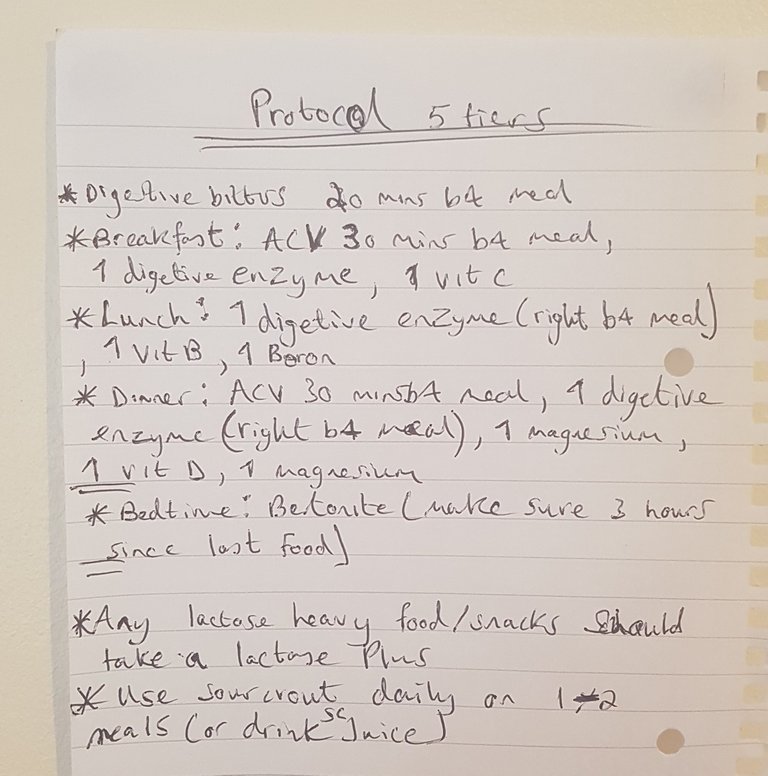 Protocol 5 tiers
* Digestive bitters 20 mins b4 meal
* Breakfast: ACV 30 mins b4 meal,
1 digetive enzyme, 1 vit C
* Lunch: 1 digetive enzyme (right b4 meal)
, 1 Vit B, 1 Boron
* Dinner: ACV 30 mins b4 meal, 1 digetive
enzyme (right b4 meal), 1 magnesium,
1 vit D, 1 magnesium
* Bedtime: Bentonite (make sure 3 hours
since last food)
* Any lactose heavy food/snacks should
take a lactose Plus
* Use sourcrout daily on 1-2
meals (or drink SC Juice)